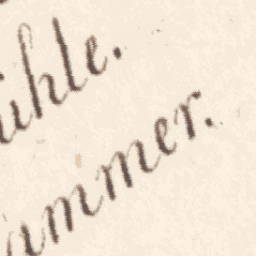 ühle.
ammer.